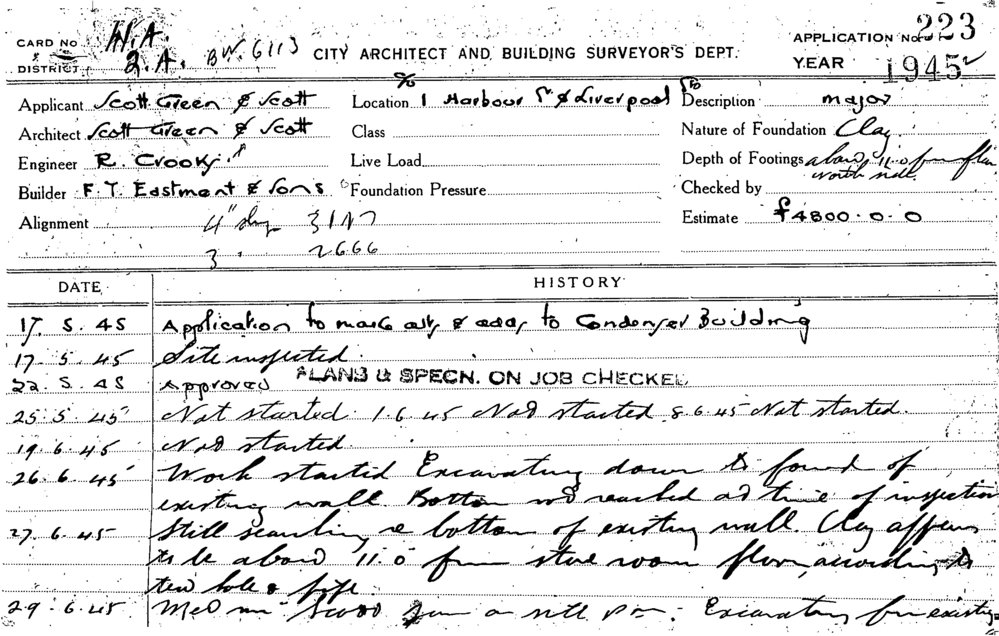 CARD NO H.A. BW.6113 CITY ARCHITECT AND BUILDING SURVEYOR'S DEPT. APPLICATION No 223
DISTRICT 2.A. YEAR 1945
Applicant Scott Green & Scott Location 1 Harbour St & Liverpool St Description major
Architect Scott Green & Scott Class Nature of Foundation Clay
Engineer R. Crook Live Load Depth of Footings about 11.0 from floor
north wall.
Builder F. T. Eastment & Sons Foundation Pressure Checked by
Alignment 4" 3147 Estimate £4800.0.0
3 2666
DATE HISTORY
17. 5. 45 Application to make alts & adds to Condenser Building
17. 5. 45 Site inspected.
22. 5. 45 Approved PLANS & SPECN. ON JOB CHECKED
25. 5. 45 Not started. 1.6.45 Not started 8.6.45 Not started.
19. 6. 45 Not started.
26. 6. 45 Work started Excavating down to found of
existing wall. Bottom not reached at time of inspection
27. 6. 45 Still searching re bottom of existing wall. Clay appears
to be about 11.0 from store room floor, according to
test hole &
29. 6. 45 Met Mr Scott on Excavating for existing